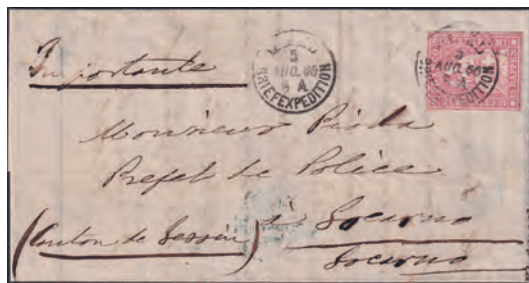 Importante
5
AUG. 60
BRIEFEXPEDITION
5
AUG. 60
BRIEFEXPEDITION
RAPPEN
Monsieur Pioda
Prefet de Police
(Canton de Tessin) à Locarno
Locarno